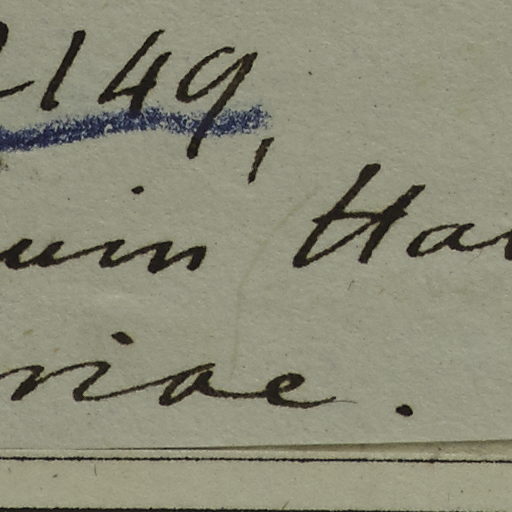 2149,
uin Ha
riae.